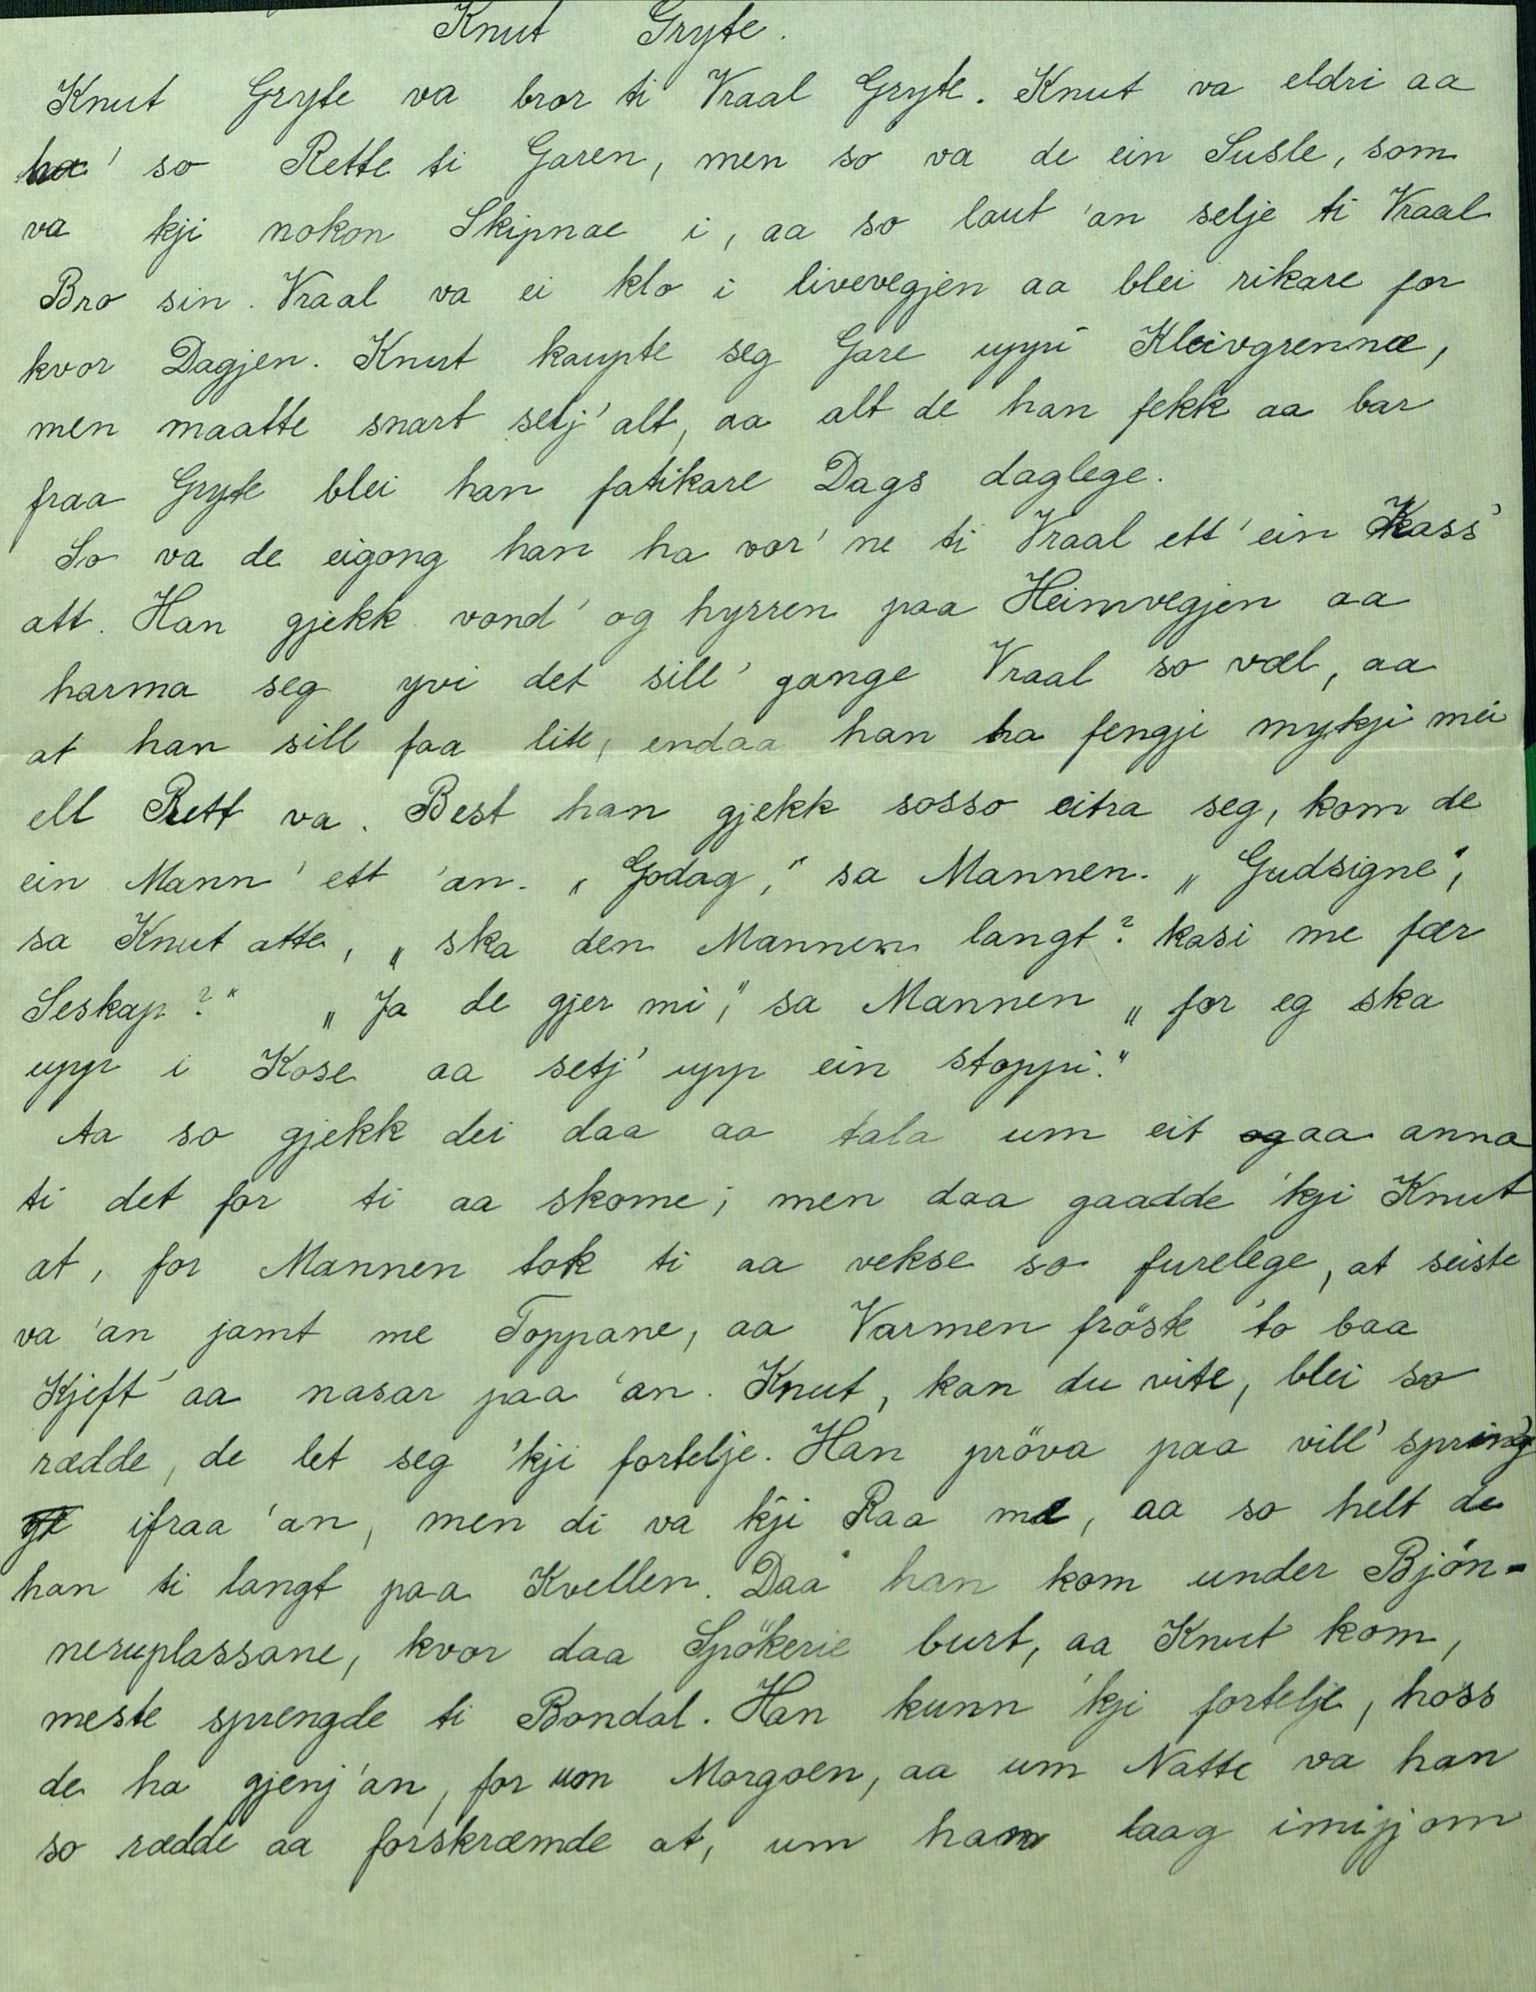 Knut Gryte.
Knut Gryte va bror ti Vraal Gryte. Knut va eldri aa
ha' so Rette ti Garen, men so va de ein Susle, som
va kji nokon Skipnae i, aa so laut 'an selje ti Vraal
Bro sin. Vraal va ei klo i livevegjen aa blei rikare for
kvor Dagjen. Knut kaupte seg Gare uppi Kleivgrennæ,
men maatte snart selj' alt, aa alt de han fekk aa bar
fraa Gryte blei han fatikare Dags daglege.
So va de eigong han ha vor' ne ti Vraal ett' ein Kass'
att. Han gjekk vond' og hyrren paa Heimvegjen aa
harma seg yvi det sill' gange Vraal so væl, aa
at han sill faa lite, endaa han ha fengji mykji mei
ell Rett va. Best han gjekk sosso eitra seg, kom de
ein Mann' ett 'an. „Godag," sa Mannen. „Gudsigne",
sa Knut atte, „ska den Mannen langt? kasi me fær
Seskap?" „Ja de gjer mi", sa Mannen „for eg ska
upp i Kose aa setj' upp ein stoppi."
Aa so gjekk dei daa aa tala um eit aa anna
ti det for ti aa skome; men daa gaadde 'kji Knut
at, for Mannen tok ti aa vekse so furelege, at seiste
va 'an jamt me Toppane, aa Varmen fröste 'to baa
Kjeft' aa nasar paa 'an. Knut, kan du vite, blei so
rædde, de let seg 'kji fortelje. Han pröva paa vill' spring'
ifraa 'an, men di va 'kji Raa me, aa so helt de
han ti langt paa Kvellen. Daa han kom under Bjön-
neruplassane, kvor daa Spökerie burt, aa Knut kom,
meste sprengde ti Bondal. Han kunn 'kji fortelje, hoss
de ha gjenj 'an, for um Morgoen, aa um Natte va han
so rædde aa forskræmde at, um han laag imijjom